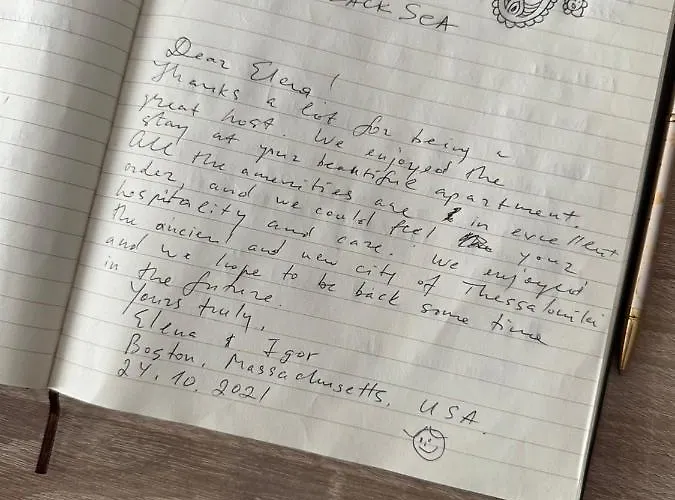 BLACK SEA
Dear Elena!
Thanks a lot for being a
great host. We enjoyed the
stay at your beautiful apartment.
All the amenities are in excellent
order, and we could feel your
hospitality and care. We enjoyed
the ancient and new city of Thessaloniki
and we hope to be back some time
in the future.
Yours truly,
Elena & Igor
Boston, Massachusetts, USA.
24.10.2021